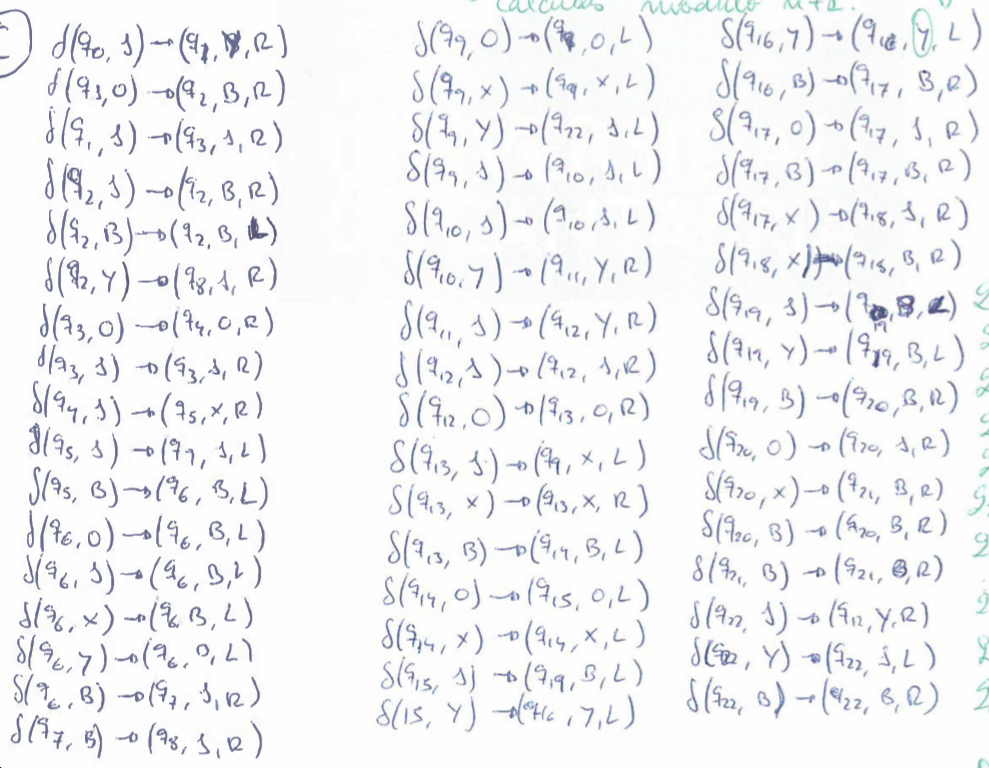 calculas modulo n+1.
δ(q0, 1) → (q1, Y, R)
δ(q1, 0) → (q2, B, R)
δ(q1, 1) → (q3, 1, R)
δ(q2, 1) → (q2, B, R)
δ(q2, B) → (q2, B, L)
δ(q2, Y) → (q8, 1, R)
δ(q3, 0) → (q4, 0, R)
δ(q3, 1) → (q3, 1, R)
δ(q4, 1) → (q5, X, R)
δ(q5, 1) → (q9, 1, L)
δ(q5, B) → (q6, B, L)
δ(q6, 0) → (q6, B, L)
δ(q6, 1) → (q6, B, L)
δ(q6, X) → (q6, B, L)
δ(q6, Y) → (q6, 0, L)
δ(q6, B) → (q7, 1, R)
δ(q7, B) → (q8, 1, R)
δ(q9, 0) → (q9, 0, L)
δ(q9, X) → (q9, X, L)
δ(q9, Y) → (q22, 1, L)
δ(q9, 1) → (q10, 1, L)
δ(q10, 1) → (q10, 1, L)
δ(q10, Y) → (q11, Y, R)
δ(q11, 1) → (q12, Y, R)
δ(q12, 1) → (q12, 1, R)
δ(q12, 0) → (q13, 0, R)
δ(q13, 1) → (q9, X, L)
δ(q13, X) → (q13, X, R)
δ(q13, B) → (q14, B, L)
δ(q14, 0) → (q15, 0, L)
δ(q14, X) → (q14, X, L)
δ(q15, 1) → (q19, B, L)
δ(15, Y) → (q16, Y, L)
δ(q16, Y) → (q16, Y, L)
δ(q16, B) → (q17, B, R)
δ(q17, 0) → (q17, 1, R)
δ(q17, B) → (q17, B, R)
δ(q17, X) → (q18, 1, R)
δ(q18, X) → (q18, B, R)
δ(q19, 1) → (q19, B, L)
δ(q19, Y) → (q19, B, L)
δ(q19, B) → (q20, B, R)
δ(q20, 0) → (q20, 1, R)
δ(q20, X) → (q21, B, R)
δ(q20, B) → (q20, B, R)
δ(q21, B) → (q21, B, R)
δ(q22, 1) → (q12, Y, R)
δ(q22, Y) → (q22, 1, L)
δ(q22, B) → (q22, B, R)